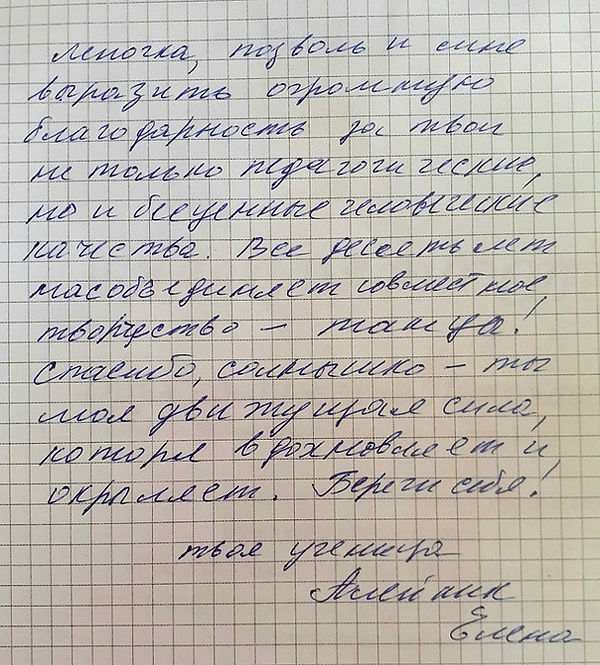 Леночка, позволь и мне
выразить огромную
благодарность за твои
не только педагогические,
но и бесценные человеческие
качества. Все десять лет
нас объединяет совместное
творчество – танца!
Спасибо, солнышко – ты
моя движущая сила,
которя вдохновляет и
окрыляет. Береги себя!
твоя ученица
Алейник
Елена